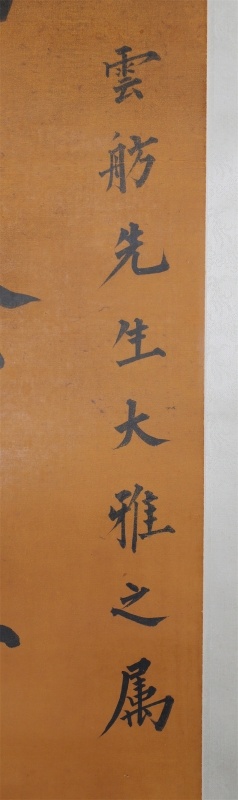 雲舫先生大雅之属